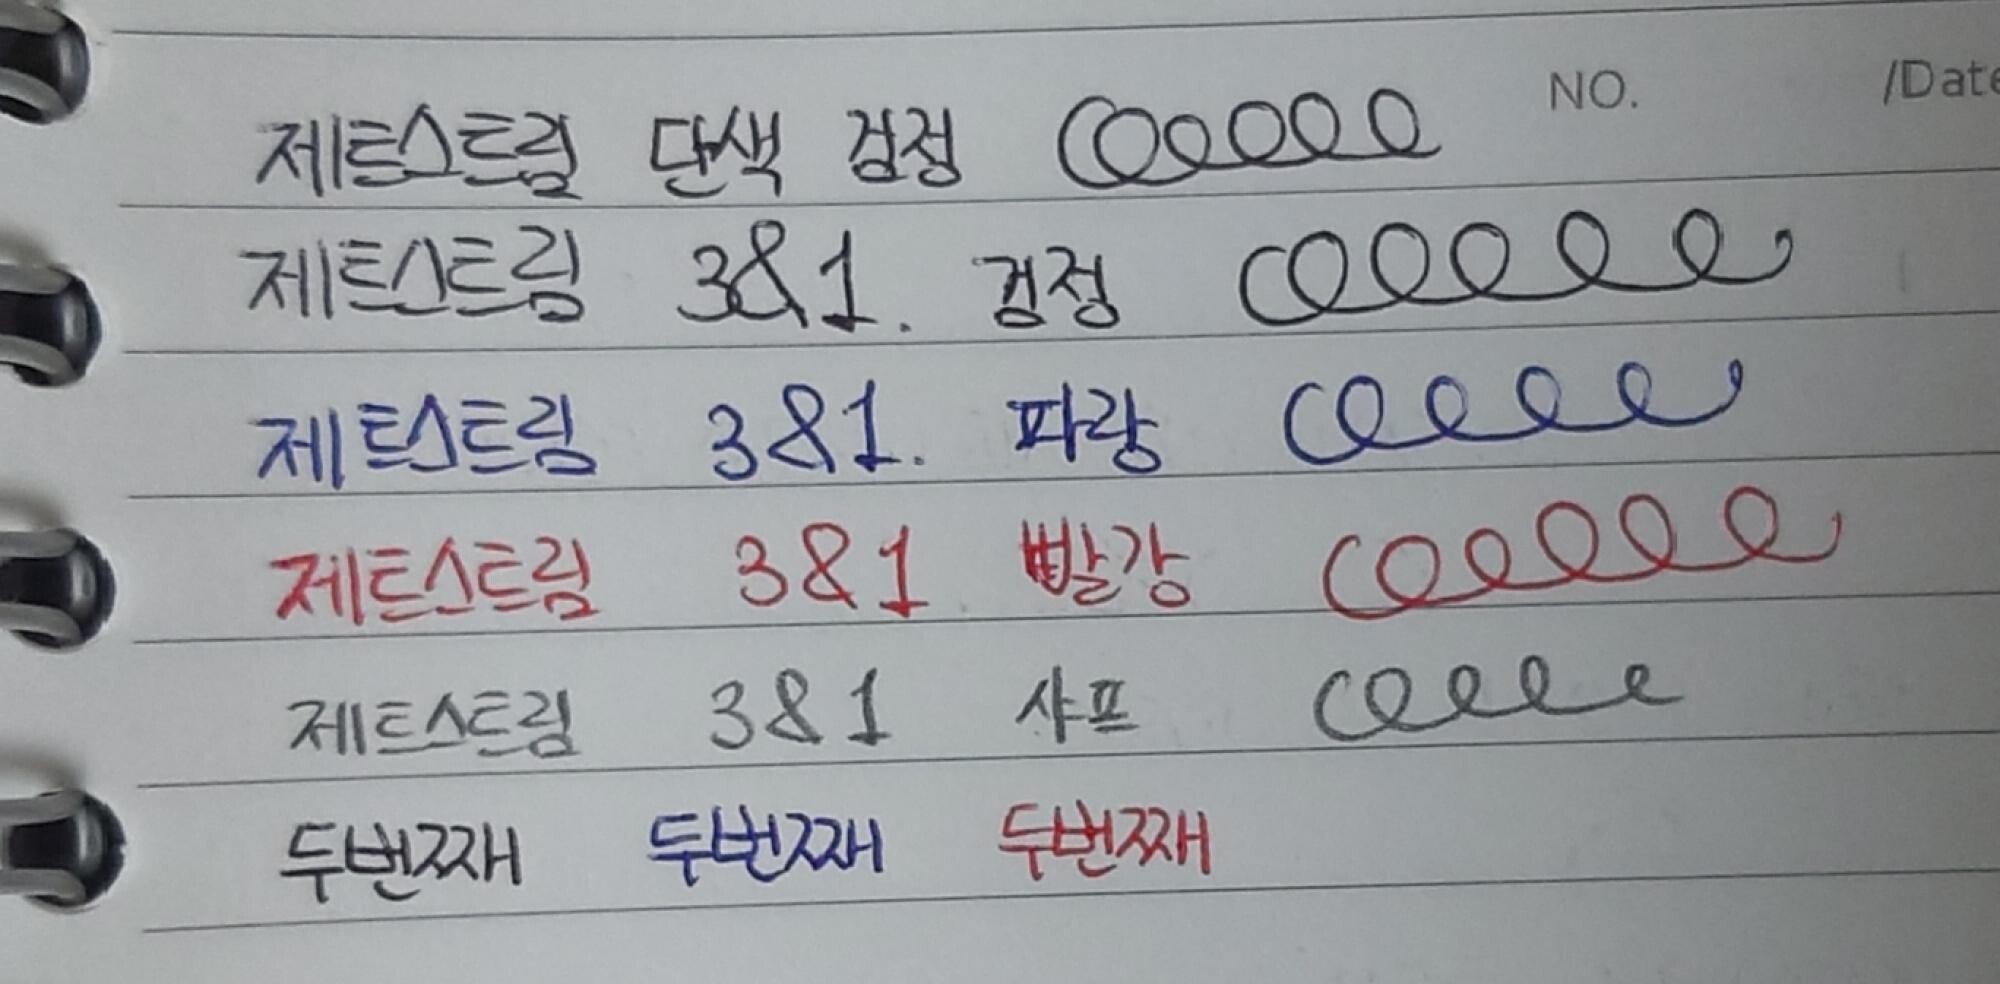 NO. /Date
제트스트림 단색 검정
제트스트림 3&1. 검정
제트스트림 3&1. 파랑
제트스트림 3&1 빨강
제트스트림 3&1 샤프
두번째 두번째 두번째